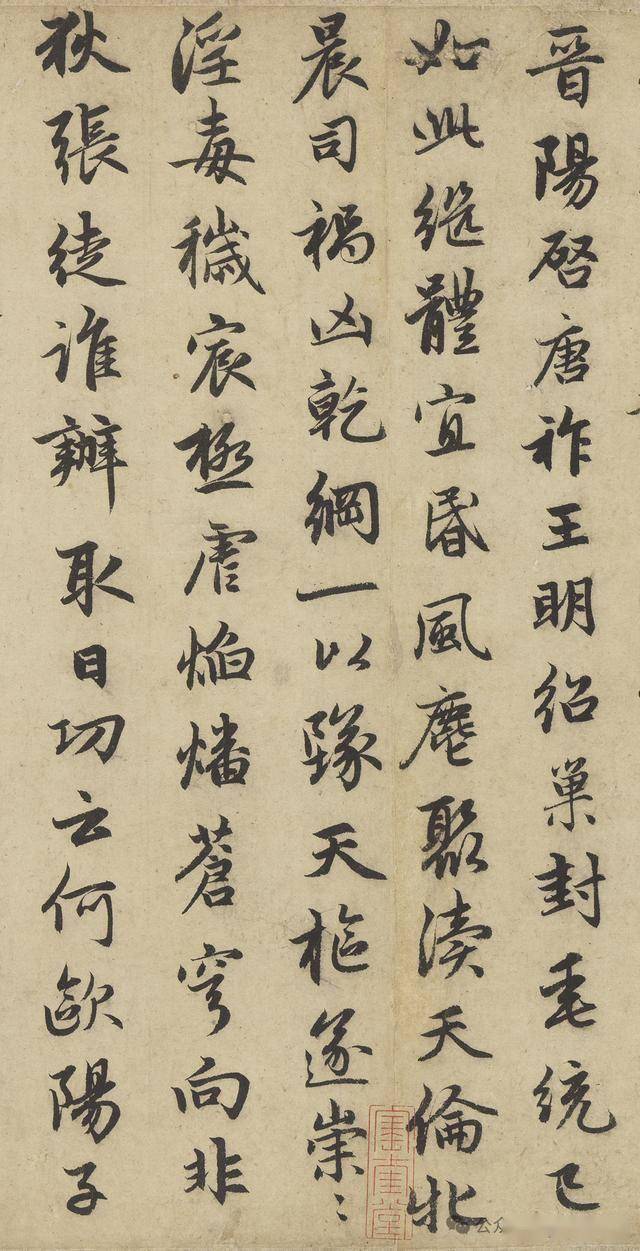 晉陽啓唐祚王明紹巢封垂統已
如此继體宜昬風麀聚瀆天倫牝
晨司禍凶乾綱一以墜天樞遂崇〻
淫毒穢宸極虐焰燔蒼穹向非
狄張徒誰辦取日功云何歐陽子